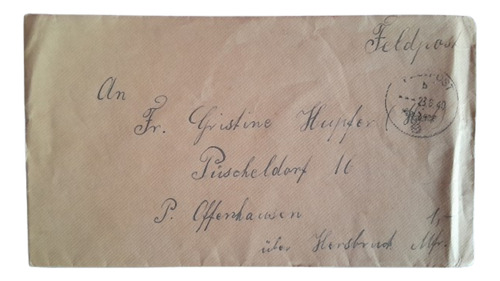 Feldpost
An
Fr. Gristine Hupfer
Püscheldorf 16
P. Offenhausen
über Hersbruck Mfr.
1,-